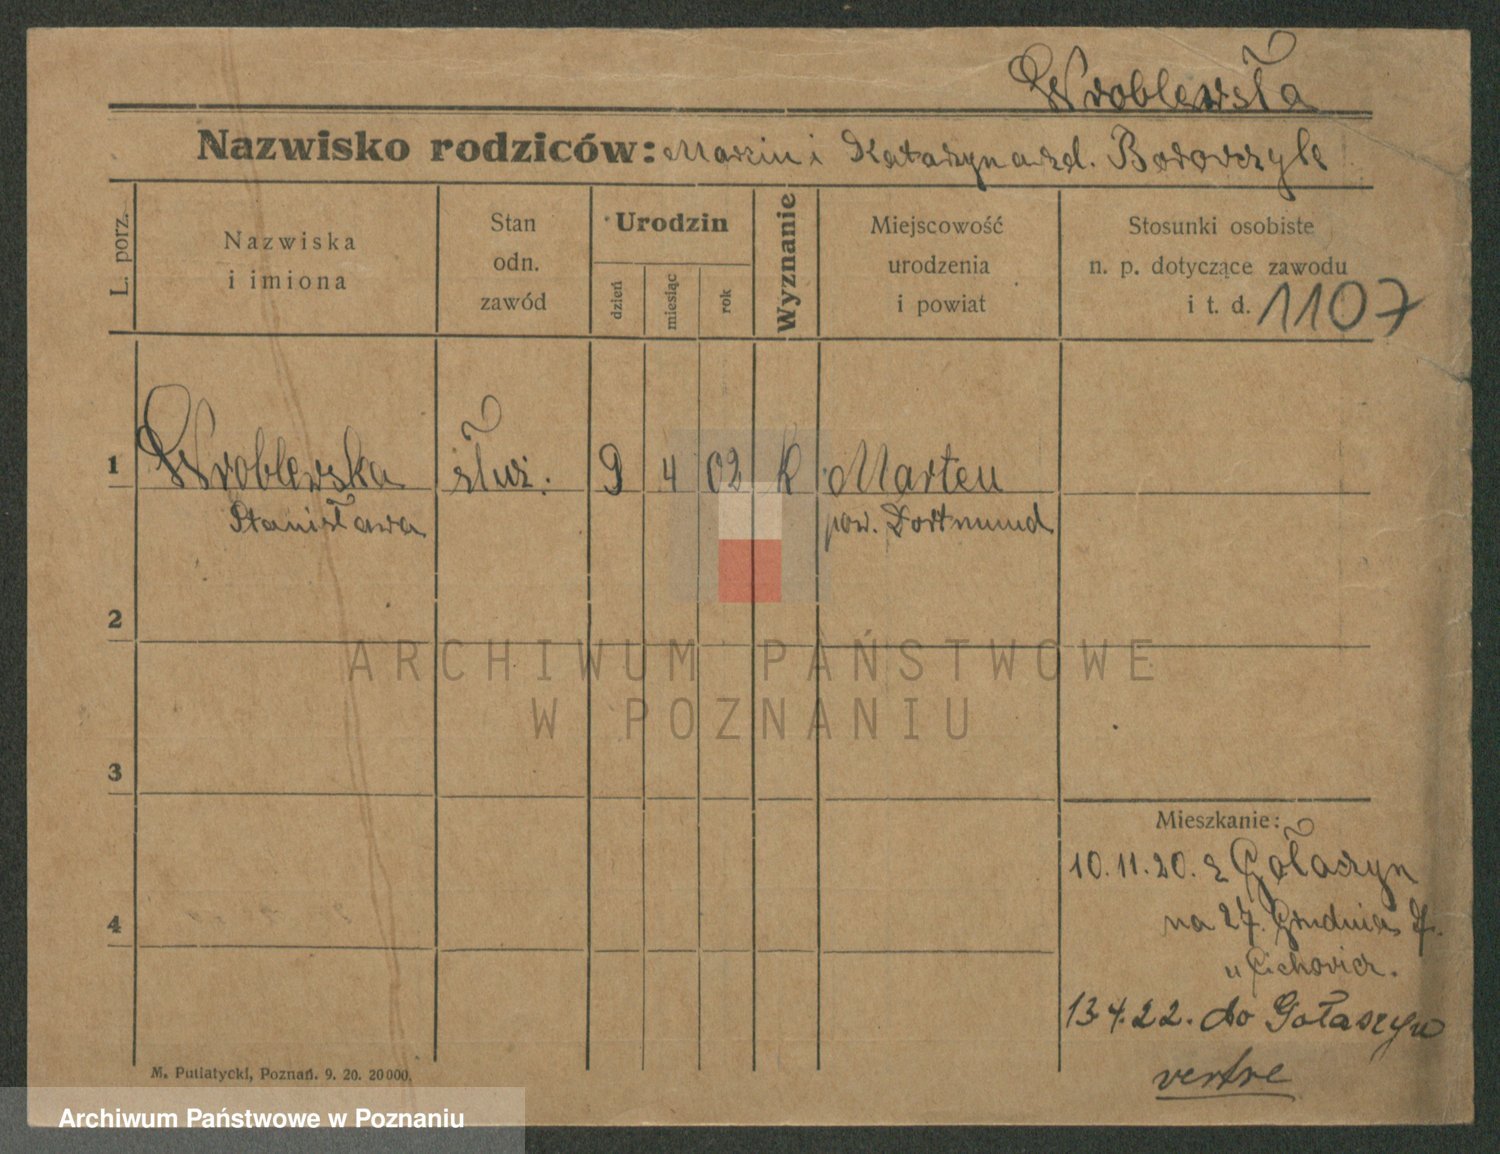 Wroblewska
Nazwisko rodziców: Marcin i Katarzyna zd. Borowczyk
L. porz.
Nazwiska
i imiona
Stan
odn.
zawód
Urodzin
dzień
miesiąc
rok
Wyznanie
Miejscowość
urodzenia
i powiat
Stosunki osobiste
n. p. dotyczące zawodu
i t. d. 1107
1 Wroblewska służ. 9 4 02 k Marten
Stanisława pow. Dortmund
2
3
4
ARCHIWUM PAŃSTWOWE
W POZNANIU
Mieszkanie:
10.11.20. z Gołaszyn
na 27. Grudnia
u Cichowicz.
13 4.22. do Gołaszyn
vertre
M. Putiatycki, Poznań. 9. 20. 20000.
Archiwum Państwowe w Poznaniu